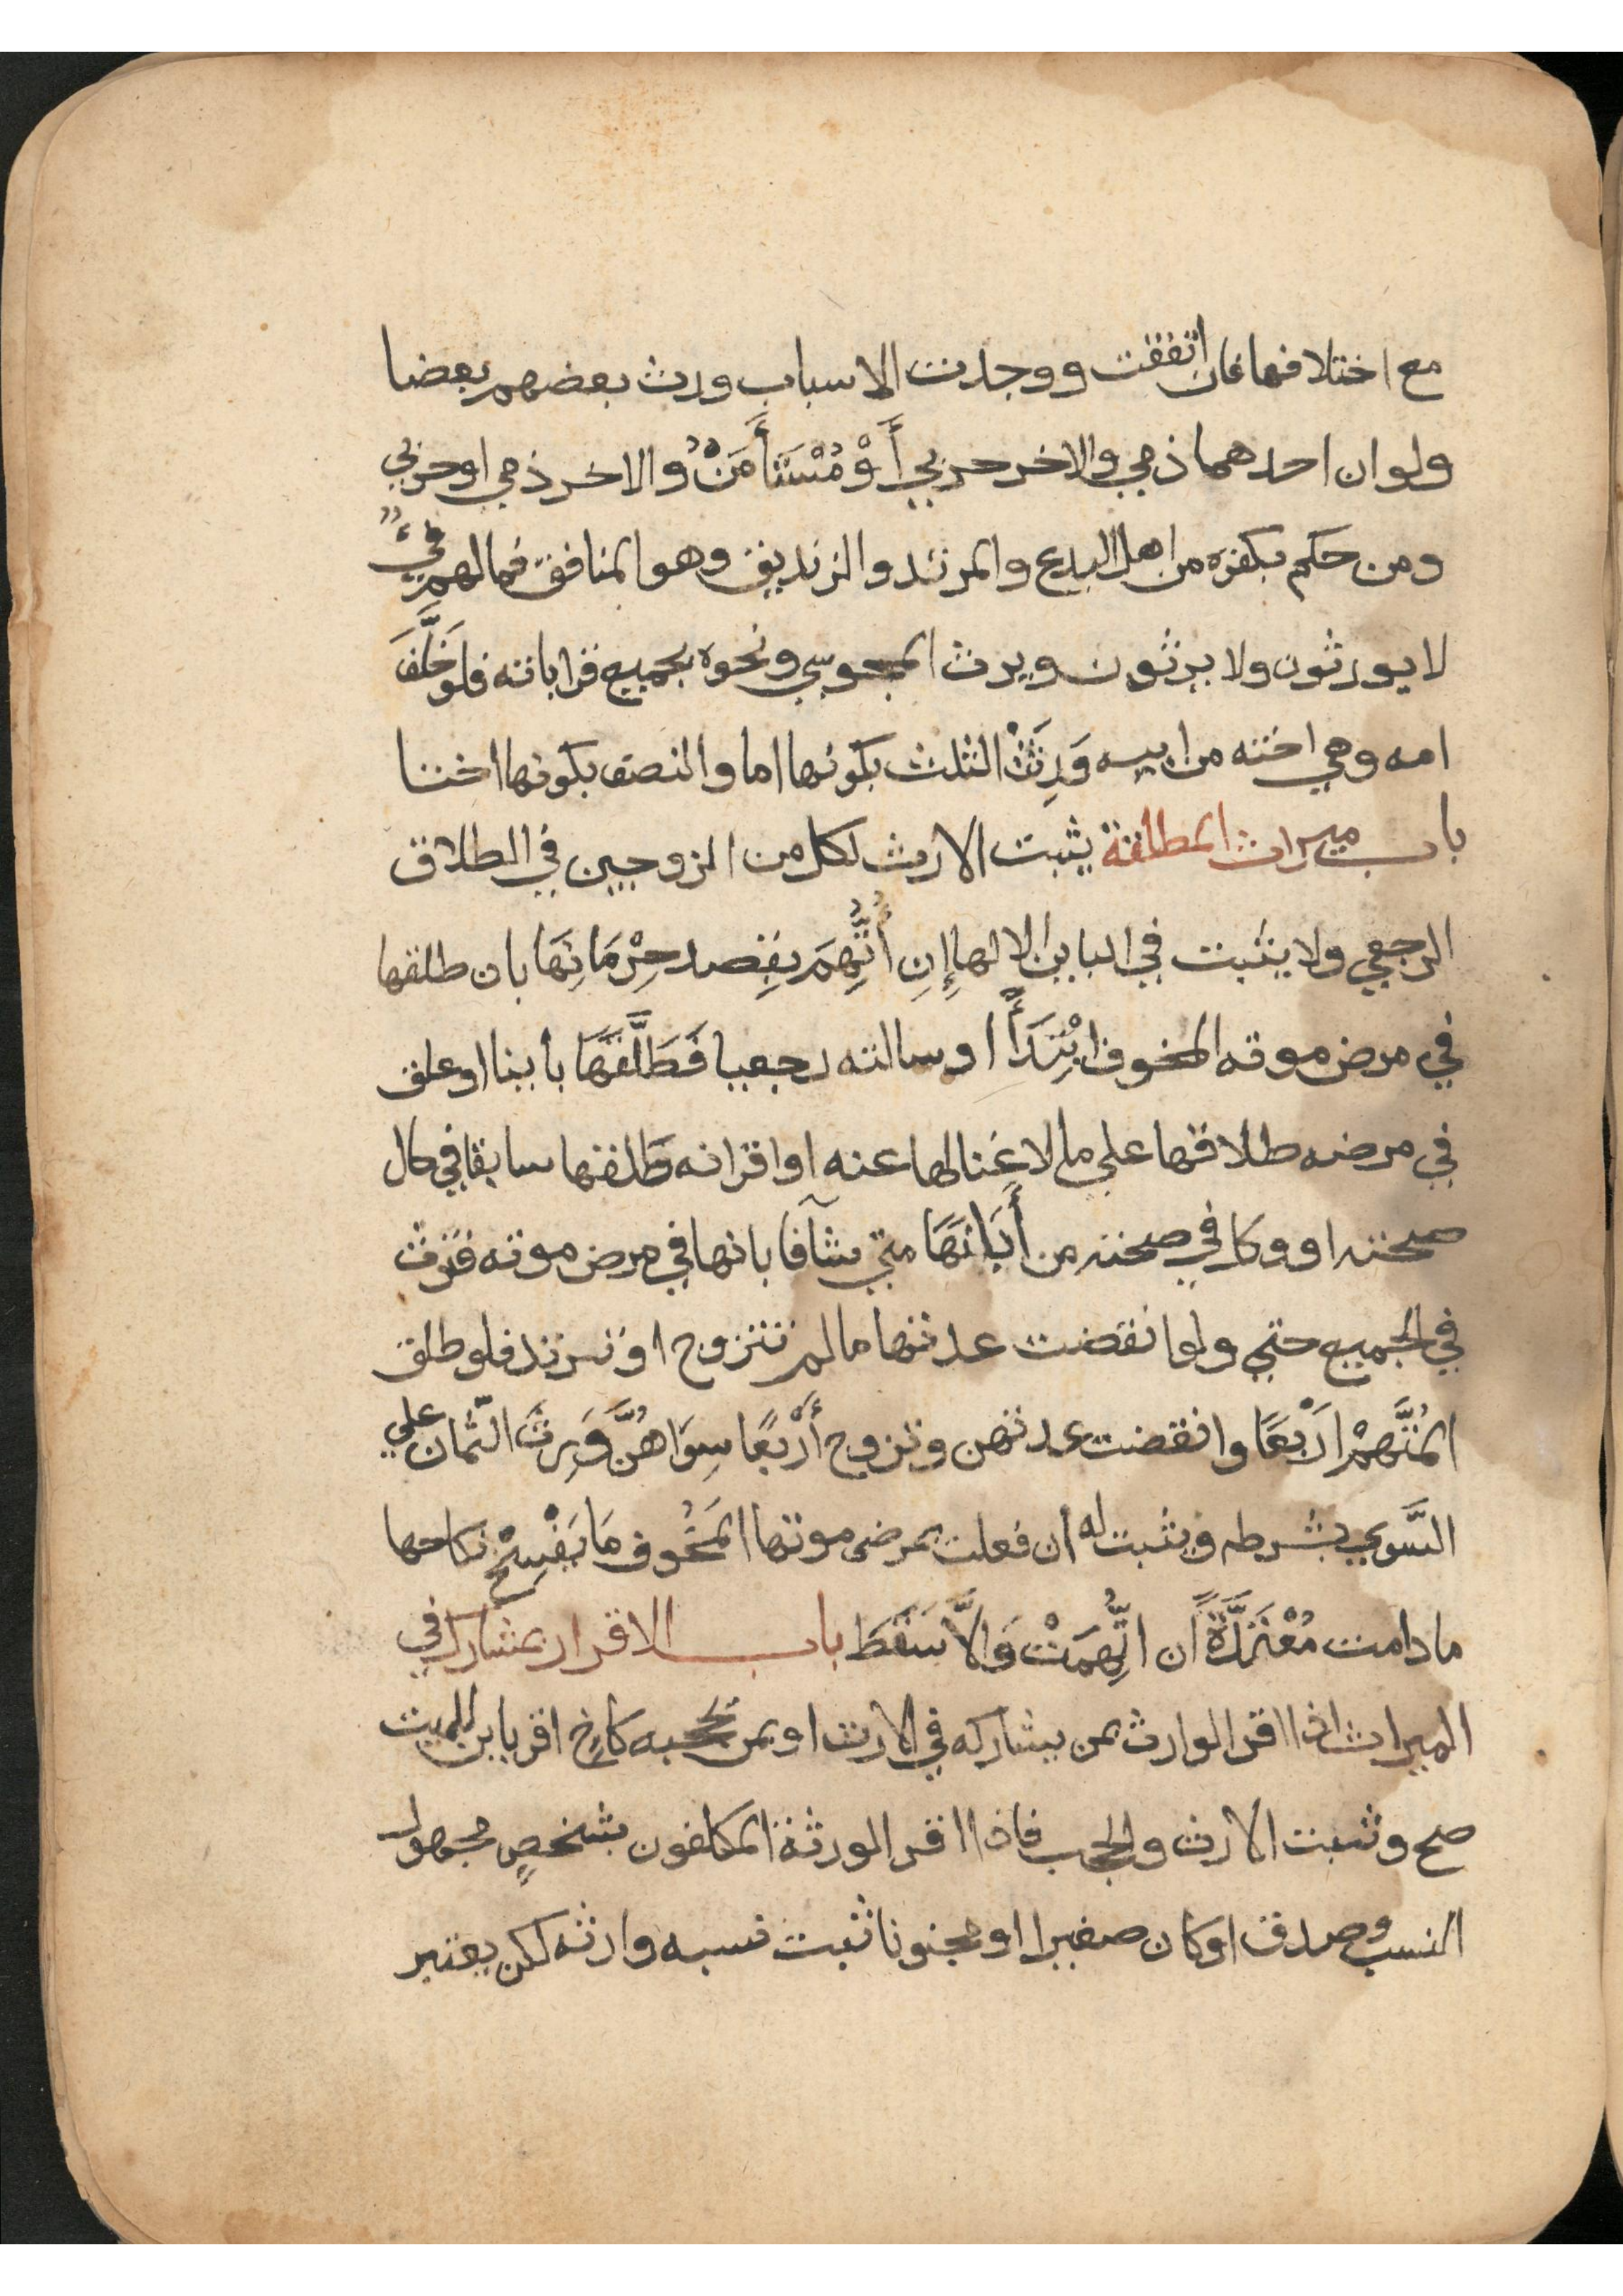 مع اختلافها فان اتفقت ووجدت الاسباب ورث بعضهم بعضا
ولو ان احدهما ذمي والاخر حربي أَوْ مُسْتَأْمَنٌ والاخر ذمي او حربي
ومن حكم بكفره من اهل البدع والمرتد والزنديق وهو المنافق فمالهم فيءٌ
لا يورثون ولا يرثون ويرث المجوسي ونحوه بجميع قراباته فلو خَلَّفَ
امه وهي اخته من ابيه وَرِثَتْ الثلث بكونها اما والنصف بكونها اختا
باب ميراث المطلقة يثبت الارث لكل من الزوجين في الطلاق
الرجعي ولا يثبت في الباين الا لها إِنِ اُتُّهِمَ بقِصد حِرْمَانِهَا بان طلقها
في مرض موته المخوف ابْتِدَأً او سالته رجعيا فَطَلَّقَهَا بأينا او علق
في مرضه طلاقها علي ما لا غنا لها عنه او اقرانه طلقها سابقا في حال
صحته او وكل في صحته من أَبَانَهَا متي شآفا بانها في مرض موته فترث
في الجميع حتي ولو انقضت عدتها ما لم تتزوج او ترتد فلو طلق
المُتَّهِمْ ارْبَعًا وانقضت عدتهن وتزوج أَرْبَعًا سِوَاهُنَّ وَرِثَ الثمان علي
السَّوي بشرطه ويثبت له ان فعلت بمرض موتها المَخُوف مَا يَفْسِخُ نكاحها
ما دامت مُعْتَدَّةً ان اتُّهِمَتْ وَالاَّ سَقَطَ باب الاقرار بمشارك في
الميراث اذا اقر الوارث بمن يشاركه في الارث او بمن يحجبه كاخٍ اقر بابن للميت
صح وثبت الارث والحجب فاذا اقر الورثة المكلفون بشخصٍ مجهول
النسب وصدق او كان صغيرا او مجنونا ثبت نسبه وارثه لكن يعتبر